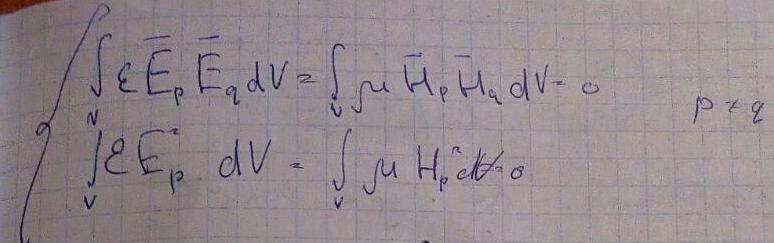 ∫_V ε Ē_p Ē_q dV = ∫_V μ H̄_p H̄_q dV = 0 p ≠ q
∫_V ε E_p² dV = ∫_V μ H_p² dV = 0